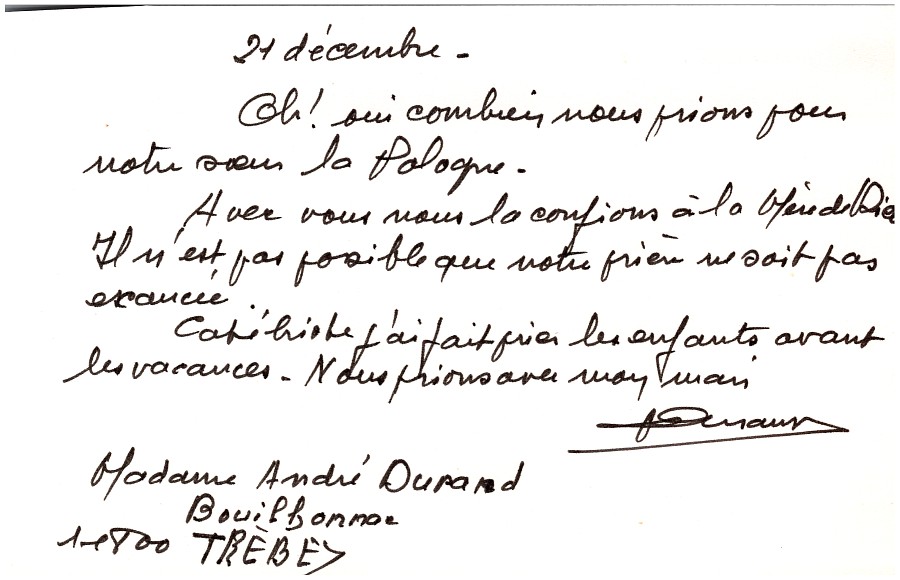 21 décembre -
Oh! oui combien nous prions pour
notre sœur la Pologne.
Avec vous nous la confions à la Mère de Dieu
Il n'est pas possible que notre prière ne soit pas
exaucée.
Catéchiste j'ai fait prier les enfants avant
les vacances - Nous prions avec mon mari
Madame André Durand
Bouilhonnac
800 TRÈBES